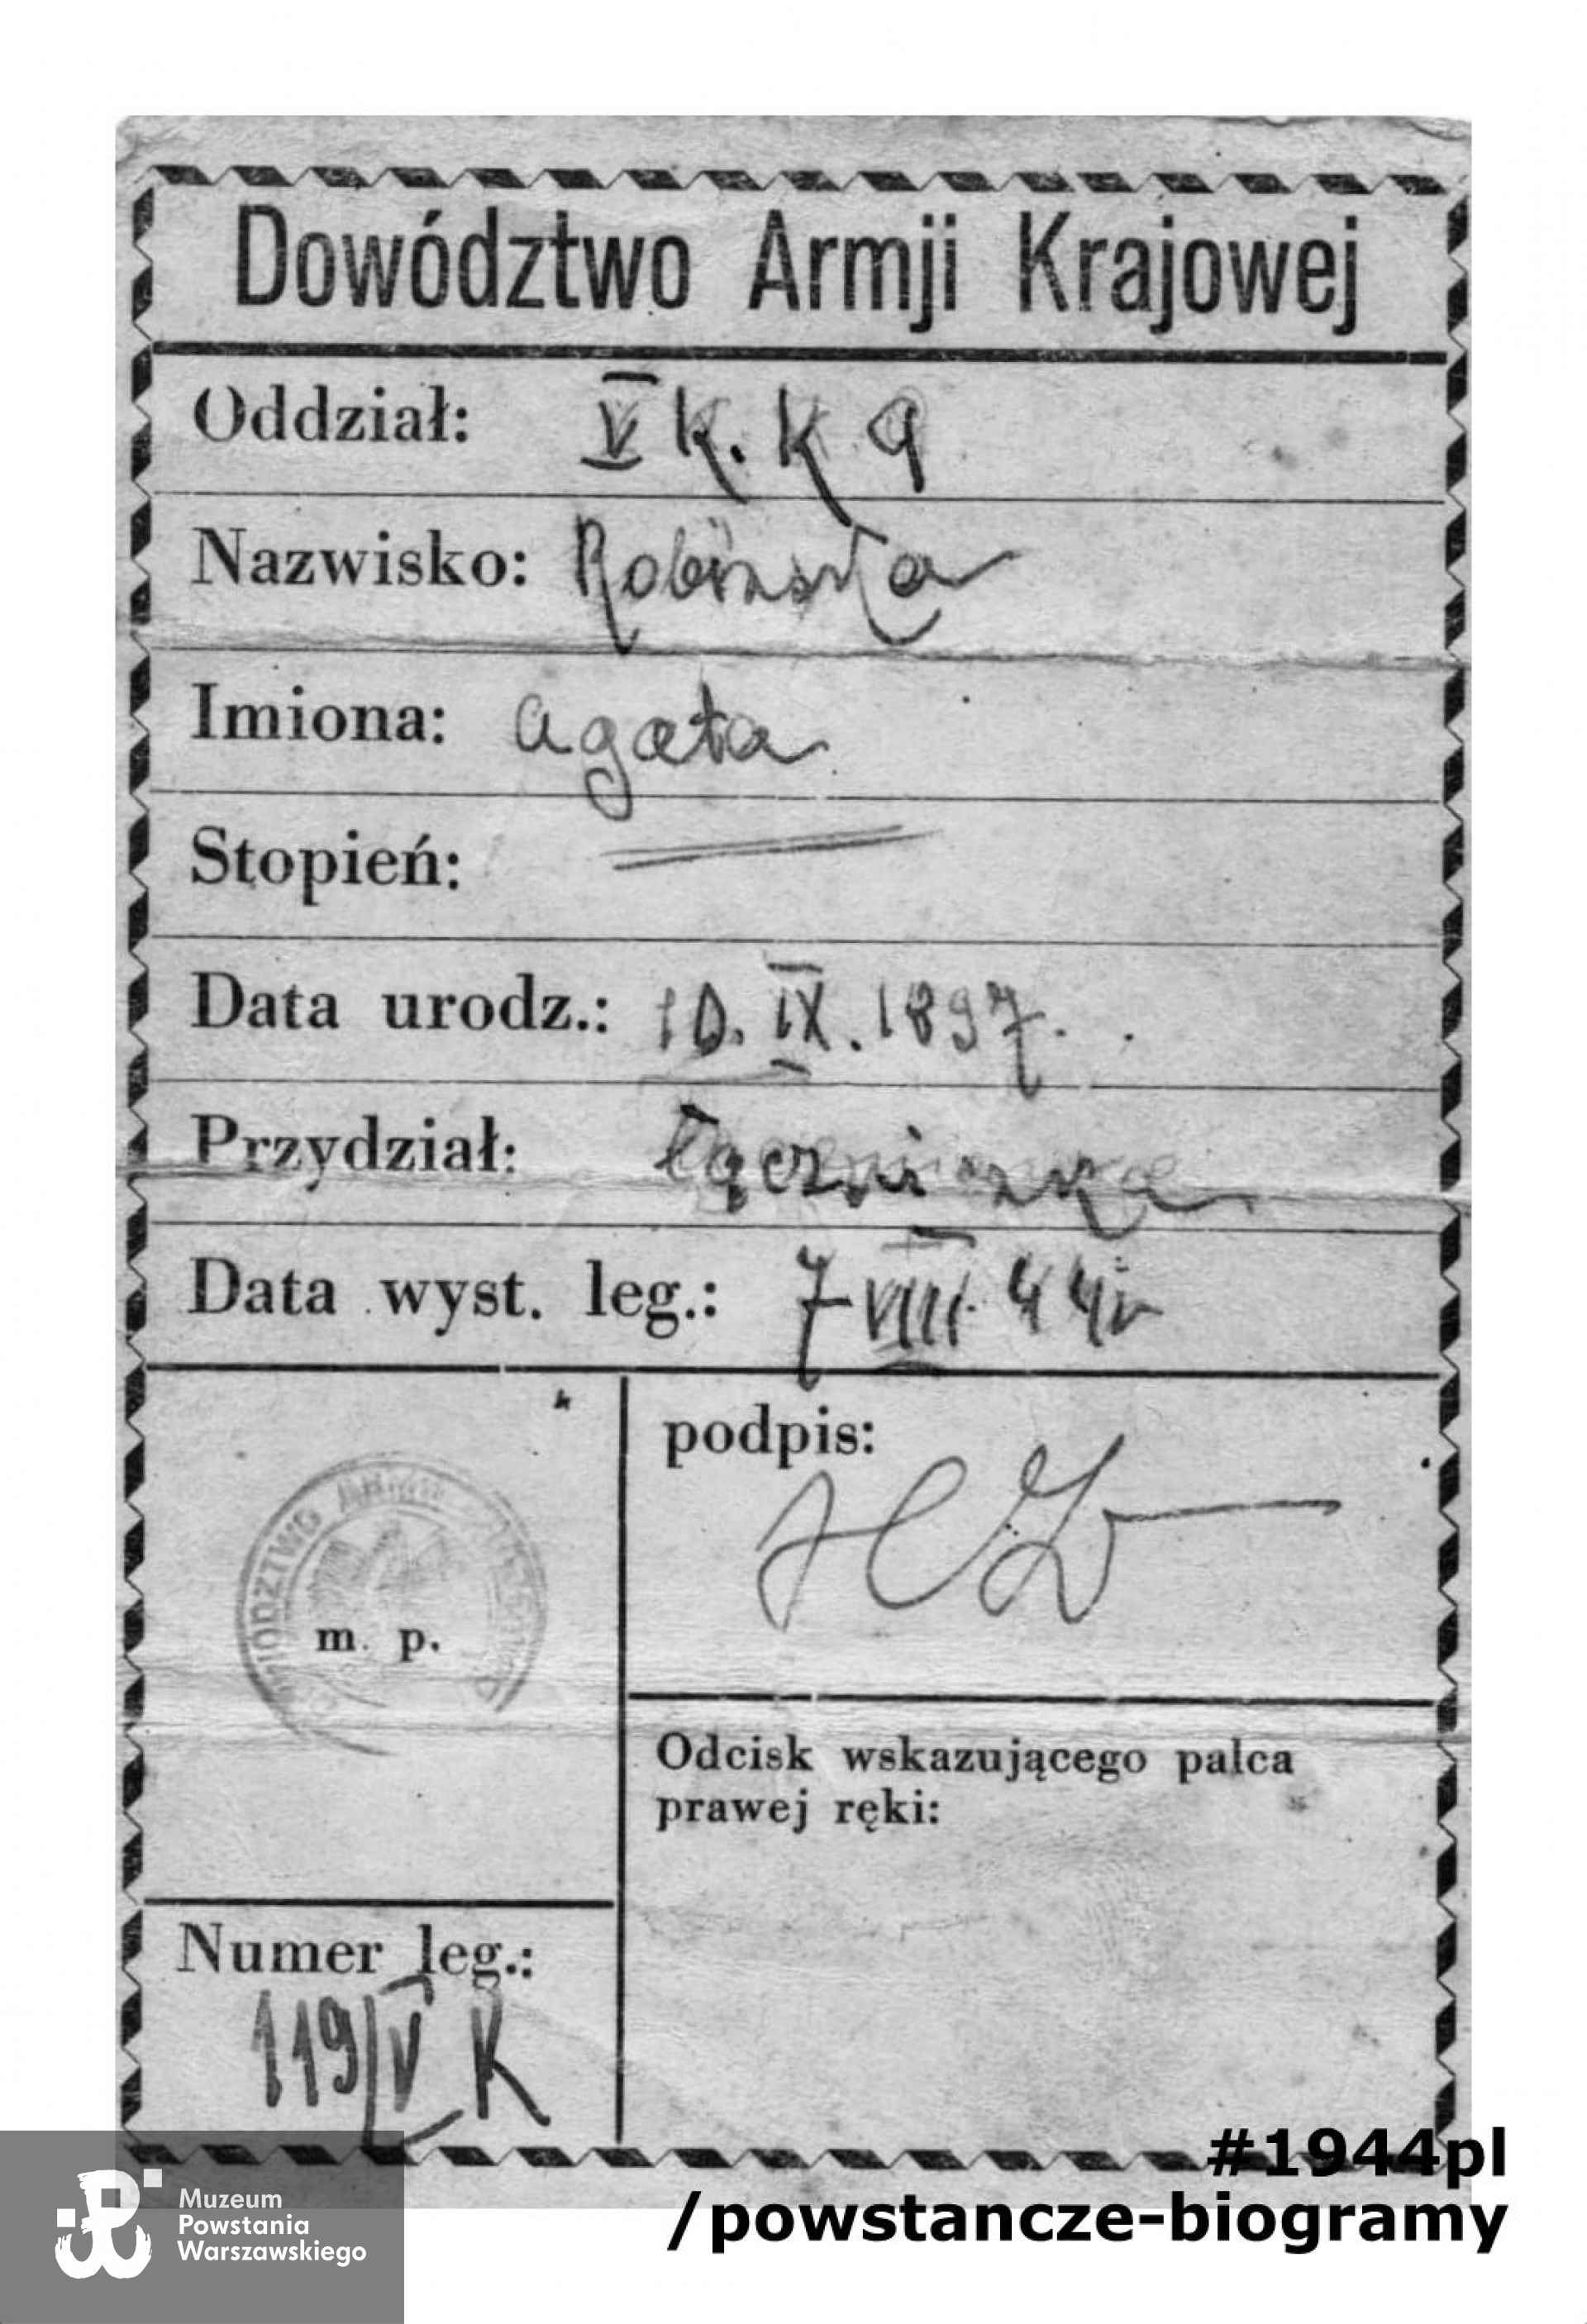 Dowództwo Armji Krajowej
Oddział: V K. K 9
Nazwisko: Robińska
Imiona: Agata
Stopień:
Data urodz.: 10. IX. 1897.
Przydział: łączniczka
Data wyst. leg.: 7 VIII. 44r
podpis:
DOWÓDZTWO ARMII
m. p.
Odcisk wskazującego palca
prawej ręki:
Numer leg.:
119/V K
#1944pl
/powstancze-biogramy
Muzeum
Powstania
Warszawskiego